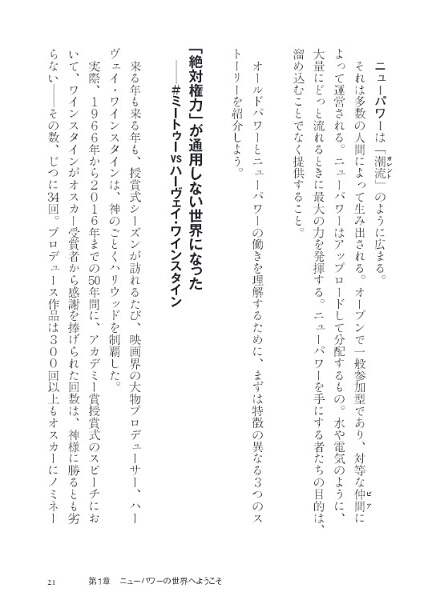 ニューパワーは「潮流」のように広まる。
カレント
それは多数の人間によって生み出される。オープンで一般参加型であり、対等な仲間に
ピア
よって運営される。ニューパワーはアップロードして分配するもの。水や電気のように、
大量にどっと流れるときに最大の力を発揮する。ニューパワーを手にする者たちの目的は、
溜め込むことでなく提供すること。
オールドパワーとニューパワーの働きを理解するために、まずは特徴の異なる3つのス
トーリーを紹介しよう。
「絶対権力」が通用しない世界になった
——#ミートゥーVSハーヴェイ・ワインスタイン
来る年も来る年も、授賞式シーズンが訪れるたび、映画界の大物プロデューサー、ハー
ヴェイ・ワインスタインは、神のごとくハリウッドを制覇した。
実際、1966年から2016年までの50年間に、アカデミー賞授賞式のスピーチにお
いて、ワインスタインがオスカー受賞者から感謝を捧げられた回数は、神様に勝るとも劣
らない——その数、じつに34回。プロデュース作品は300回以上もオスカーにノミネー
21 第1章 ニューパワーの世界へようこそ